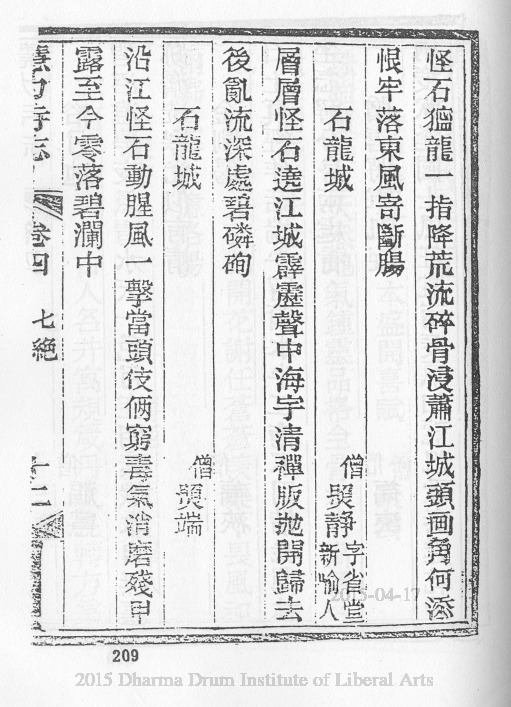 怪石獰龍一指降荒流碎骨浸蕭江城頭画角何添
恨牢落東風寄斷腸
石龍城
僧髡静字省堂新喻人
層層怪石遶江城霹靂聲中海宇清禪版抛開歸去
後亂流深處碧磷磷
石龍城
僧髡端
沿江怪石動腥風一擊當頭伎倆窮毒氣消磨殘甲
露至今零落碧瀾中
寺志
卷四
七絶
十二
209
2015-04-17
2015 Dharma Drum Institute of Liberal Arts